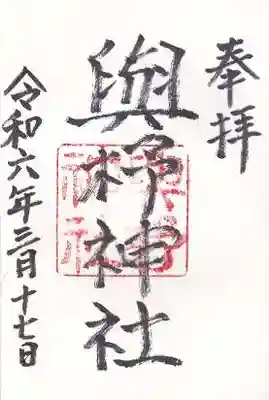 奉拝
與杼神社
令和六年三月十七日